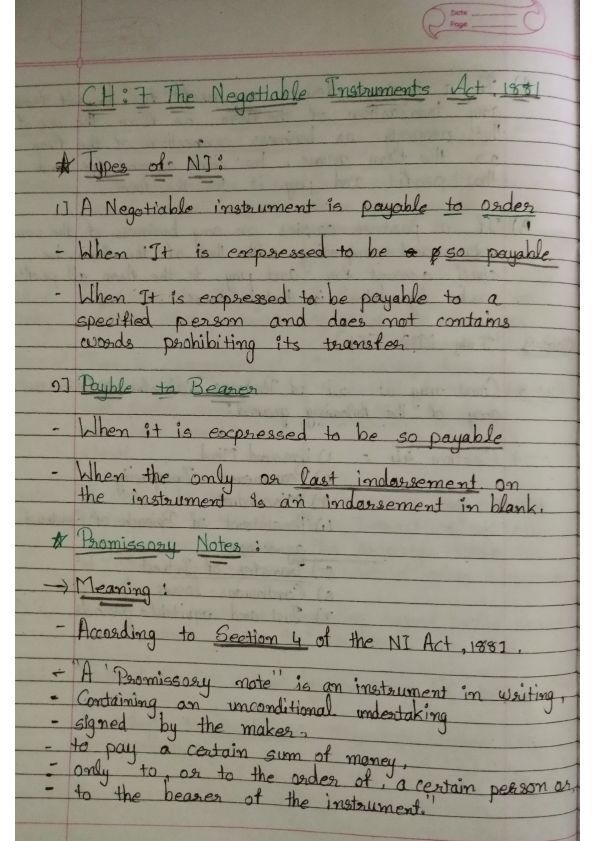 Date
Page
CH: 7 The Negotiable Instruments Act: 1881
* Types of NI:
1] A Negotiable instrument is payable to order
- When It is expressed to be so payable
- When It is expressed to be payable to a
specified person and does not contains
words prohibiting its transfer.
2] Payble to Bearer
- When it is expressed to be so payable
- When the only or last indorsement on
the instrument is an indorsement in blank.
* Promissory Notes :
→ Meaning :
- According to Section 4 of the NI Act, 1881.
- "A 'Promissory note" is an instrument in writing,
- Containing an unconditional undertaking
- signed by the maker,
- to pay a certain sum of money,
- only to, or to the order of, a certain person or,
- to the bearer of the instrument."